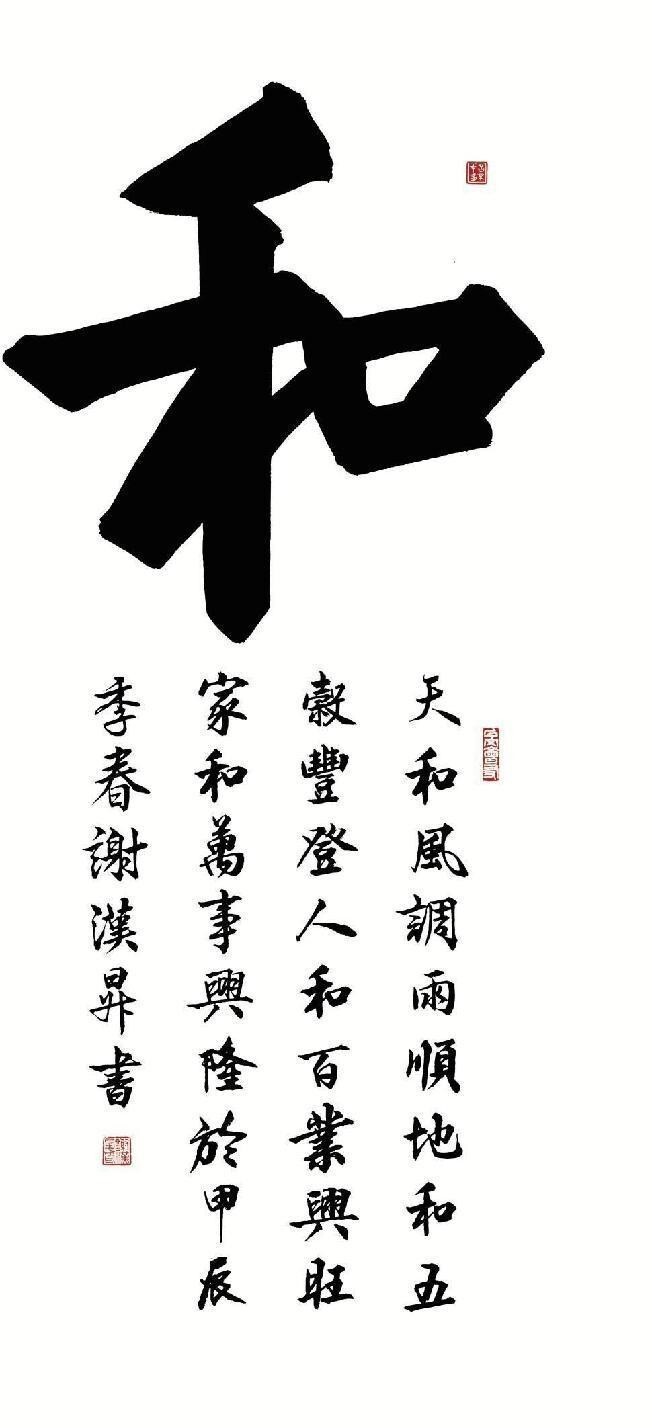 和
天和風調雨順地和五
穀豐登人和百業興旺
家和萬事興隆於甲辰
季春謝漢昇書